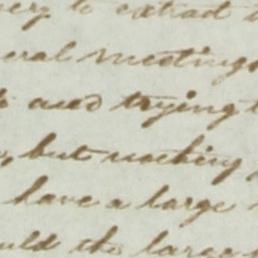 to extract
eral meetings
and trying
, but nothing
have a large
uld the large